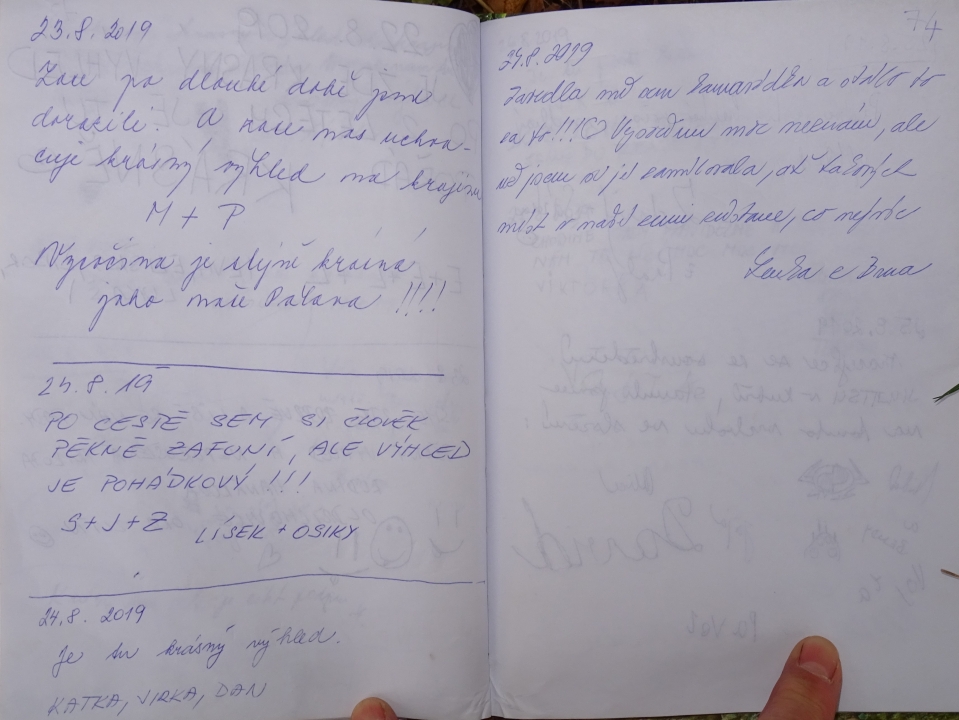 23.8.2019
Zase po dlouhé době jsme
dorazili. A zase nás uchva-
cuje krásný výhled na krajinu
M + P
Vysočina je stejně krásná
jako naše Pálava !!!!
24.8.19
PO CESTĚ SEM SI ČLOVĚK
PĚKNĚ ZAFUNÍ, ALE VÝHLED
JE POHÁDKOVÝ !!!
S+J+Z LÍSEK + OSIKY
24.8.2019
Je tu krásný výhled.
KATKA, JIRKA, DAN
74
24.8.2019
mě sem a stálo to
za to!!! Vysočinu moc neznám, ale
už jsem si ji zamilovala, ať takových
míst v naší zemi zůstane, co nejvíc
Lenka z Brna